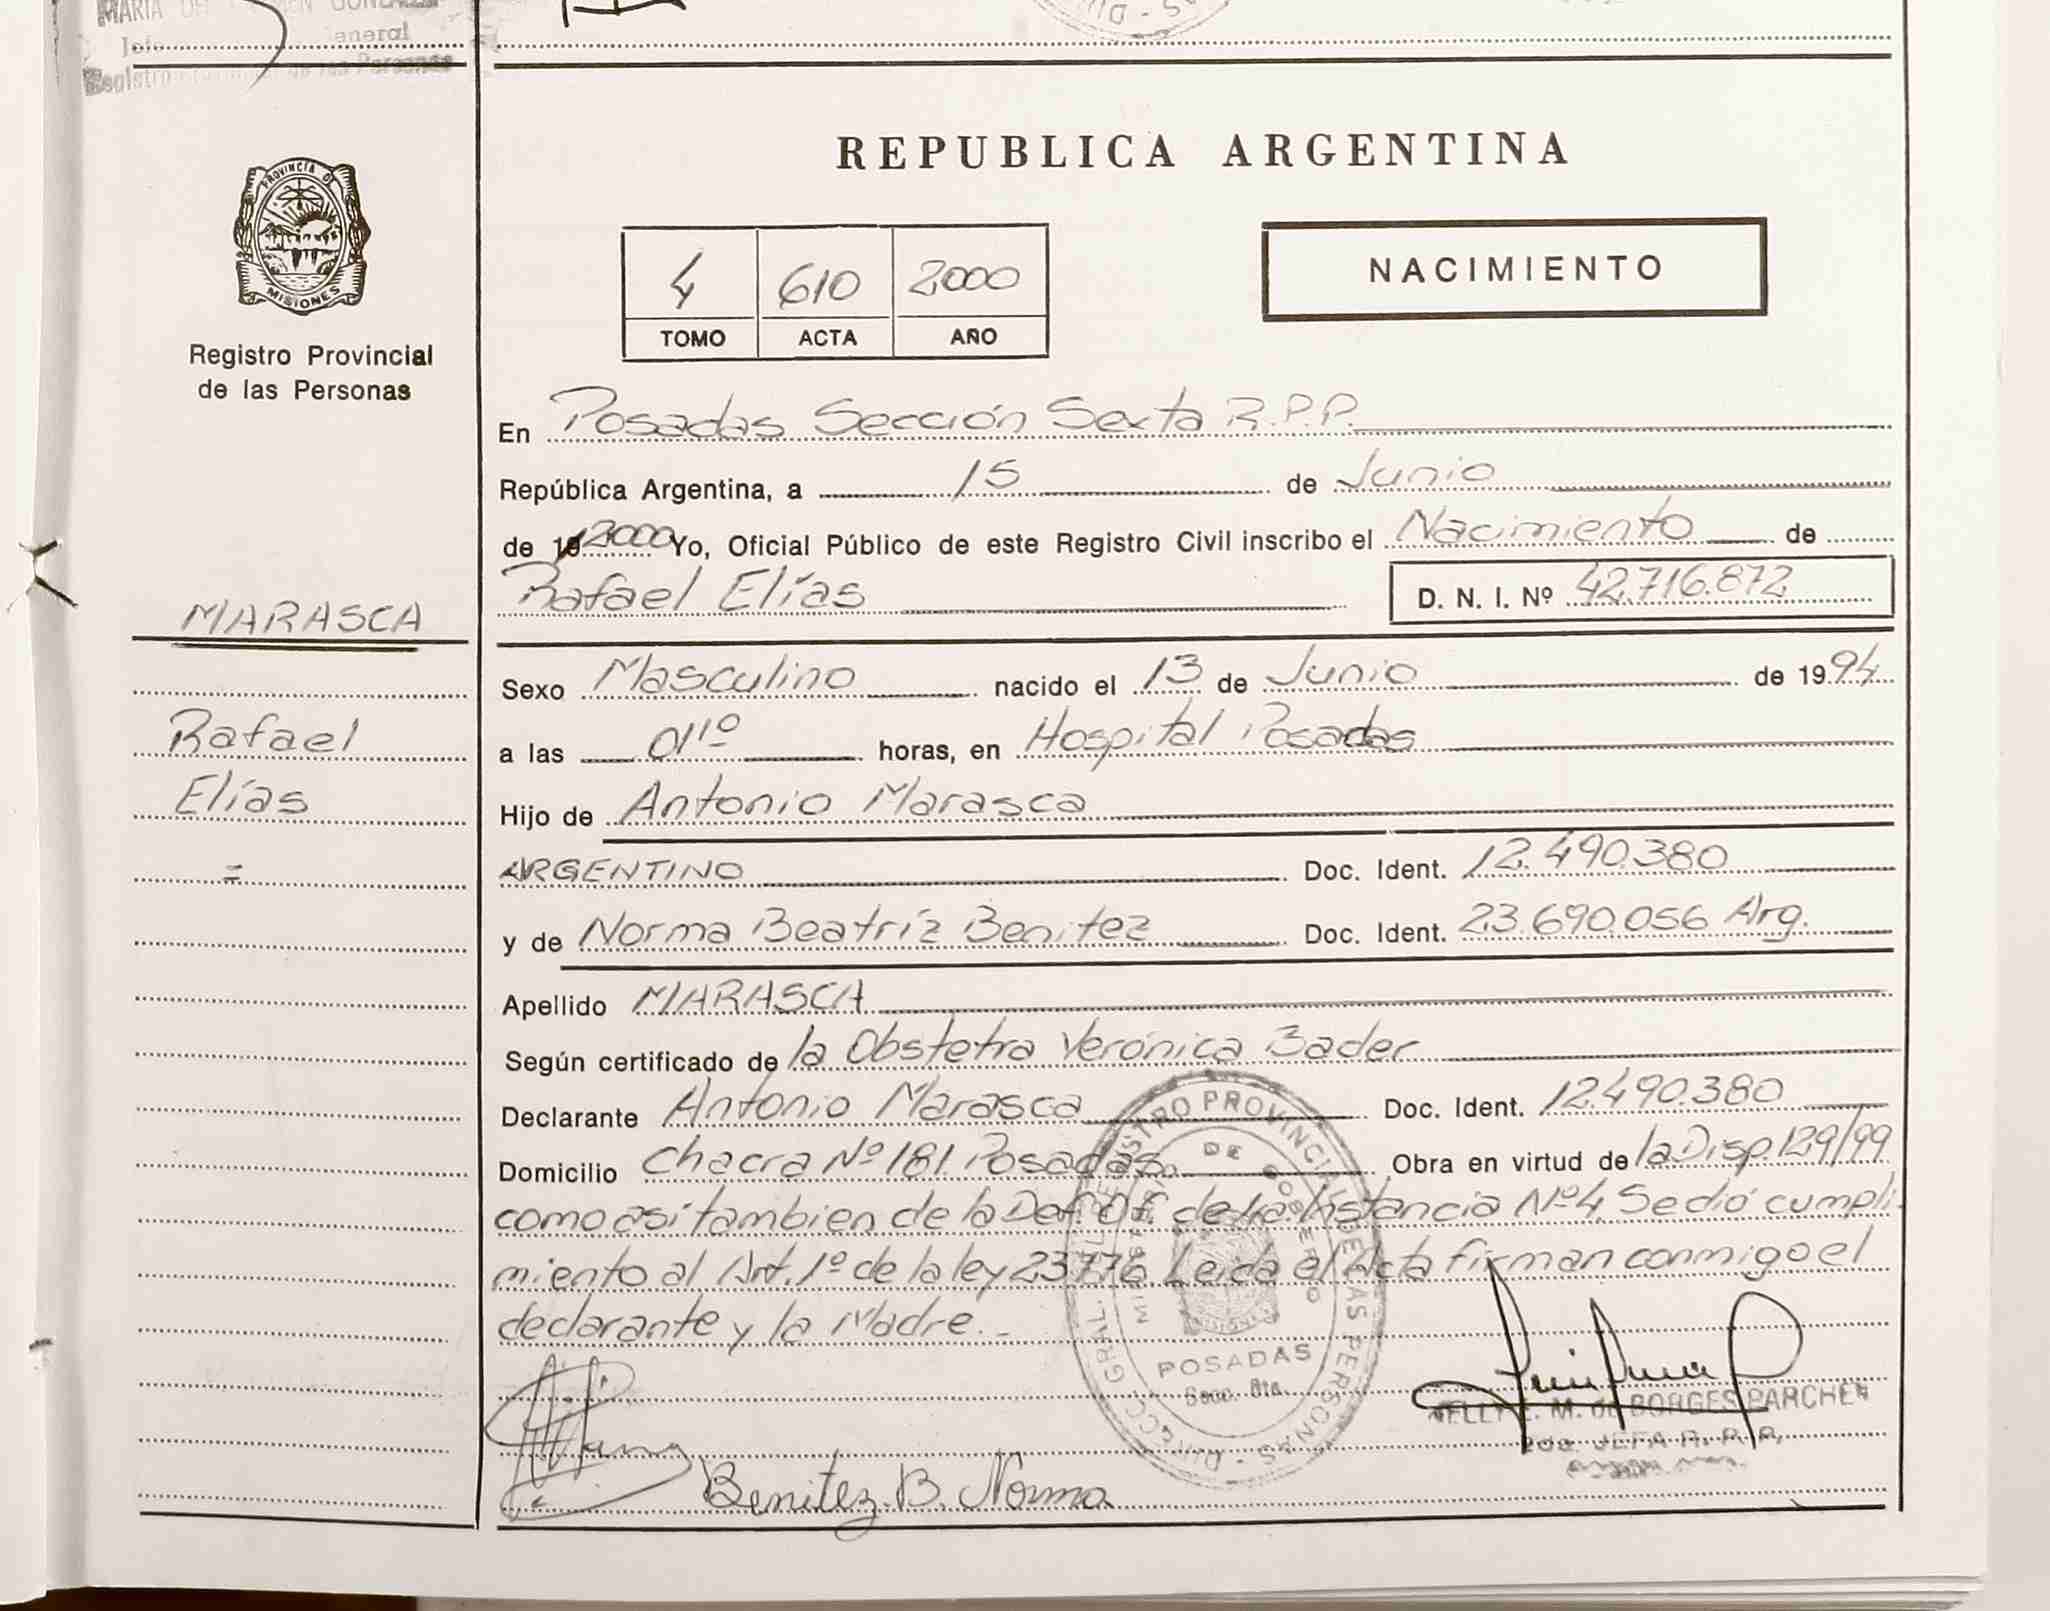 MARIA DEL
eneral
REPUBLICA ARGENTINA
PROVINCIA DE
MISIONES
Registro Provincial
de las Personas
4 610 2000
TOMO ACTA AÑO
NACIMIENTO
En Posadas Sección Sexta R.P.P.
República Argentina, a 15 de Junio
de 19 2000 Yo, Oficial Público de este Registro Civil inscribo el Nacimiento de
Rafael Elías D. N. I. Nº 42.716.872
MARASCA
Sexo Masculino nacido el 13 de Junio de 1994
Rafael
a las 01¹⁰ horas, en Hospital Posadas
Elías
Hijo de Antonio Marasca
=
ARGENTINO Doc. Ident. 12.490.380
y de Norma Beatríz Benitez Doc. Ident. 23.690.056 Arg.
Apellido MARASCA
Según certificado de la Obstetra Verónica Bader
Declarante Antonio Marasca Doc. Ident. 12.490.380
Domicilio Chacra Nº 181. Posadas. Obra en virtud de la Disp. 129/99
como asi tambien de la Def. Of. de 1ra. Instancia Nº 4. Se dió cumpli-
miento al Art. 1º de la ley 23776 Leida el Acta firman conmigo el
declarante y la Madre.-
REGISTRO PROVINCIAL DE LAS PERSONAS
DE GOBIERNO
POSADAS
Secc. 6ta.
M. de BORGES PARCHEN
2da. JEFA R. P. P.
Benitez. B. Norma